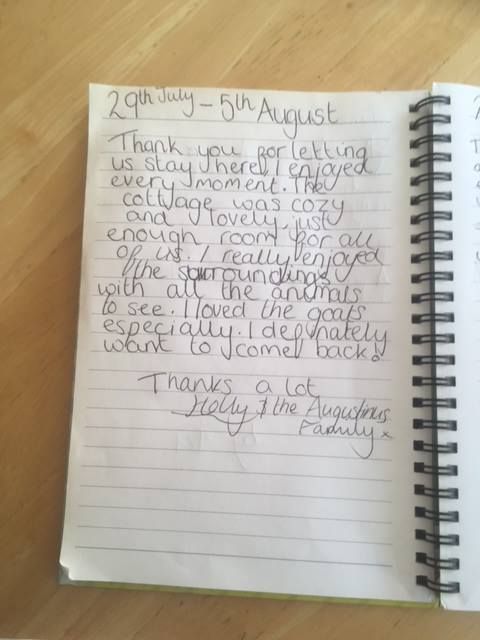 29th July - 5th August
Thank you for letting
us stay here! I enjoyed
every moment. The
cottage was cozy
and lovely, just
enough room for all
of us. I really enjoyed
the surroundings
with all the animals
to see. I loved the goats
especially. I definately
want to come back.
Thanks a lot
Holly & the Augustinus
Family x